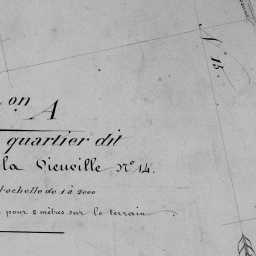 on A
quartier dit
la Vieuville N° 14.
l'échelle de 1 à 2000
pour 2 mètres sur le terrain
N° 15.